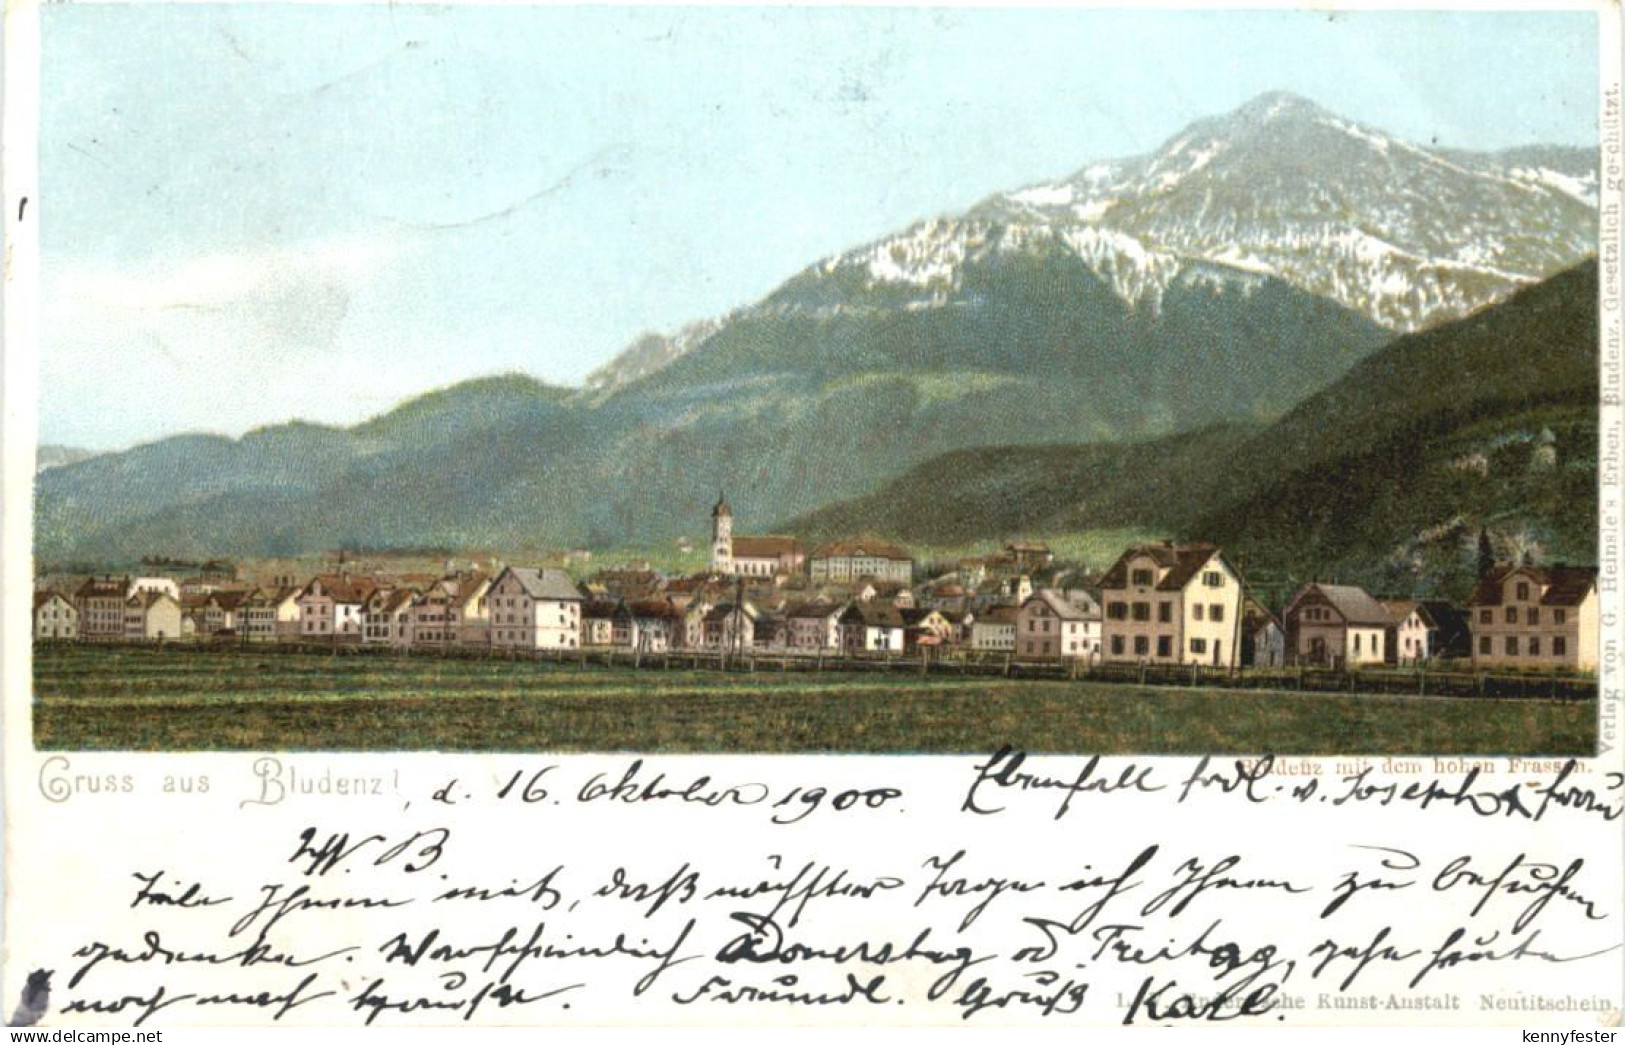 Verlag von G. Heinsle's Erben, Bludenz. Gesetzlich geschützt.
Bludenz mit dem hohen Frassen.
Gruss aus Bludenz!, d. 16. Oktober 1900.
Ebenfall frdl. v. Joseph & Frau
W. B.
Teile Ihnen mit, daß nächster Tage ich Ihnen zu besuchen
gedenke. Warscheinlich Donerstag od. Freitag, gehe heute
noch nach Hause. Freundl. Gruß Karl.
Kunst-Anstalt Neutitschein.
delcampe.net
kennyfester